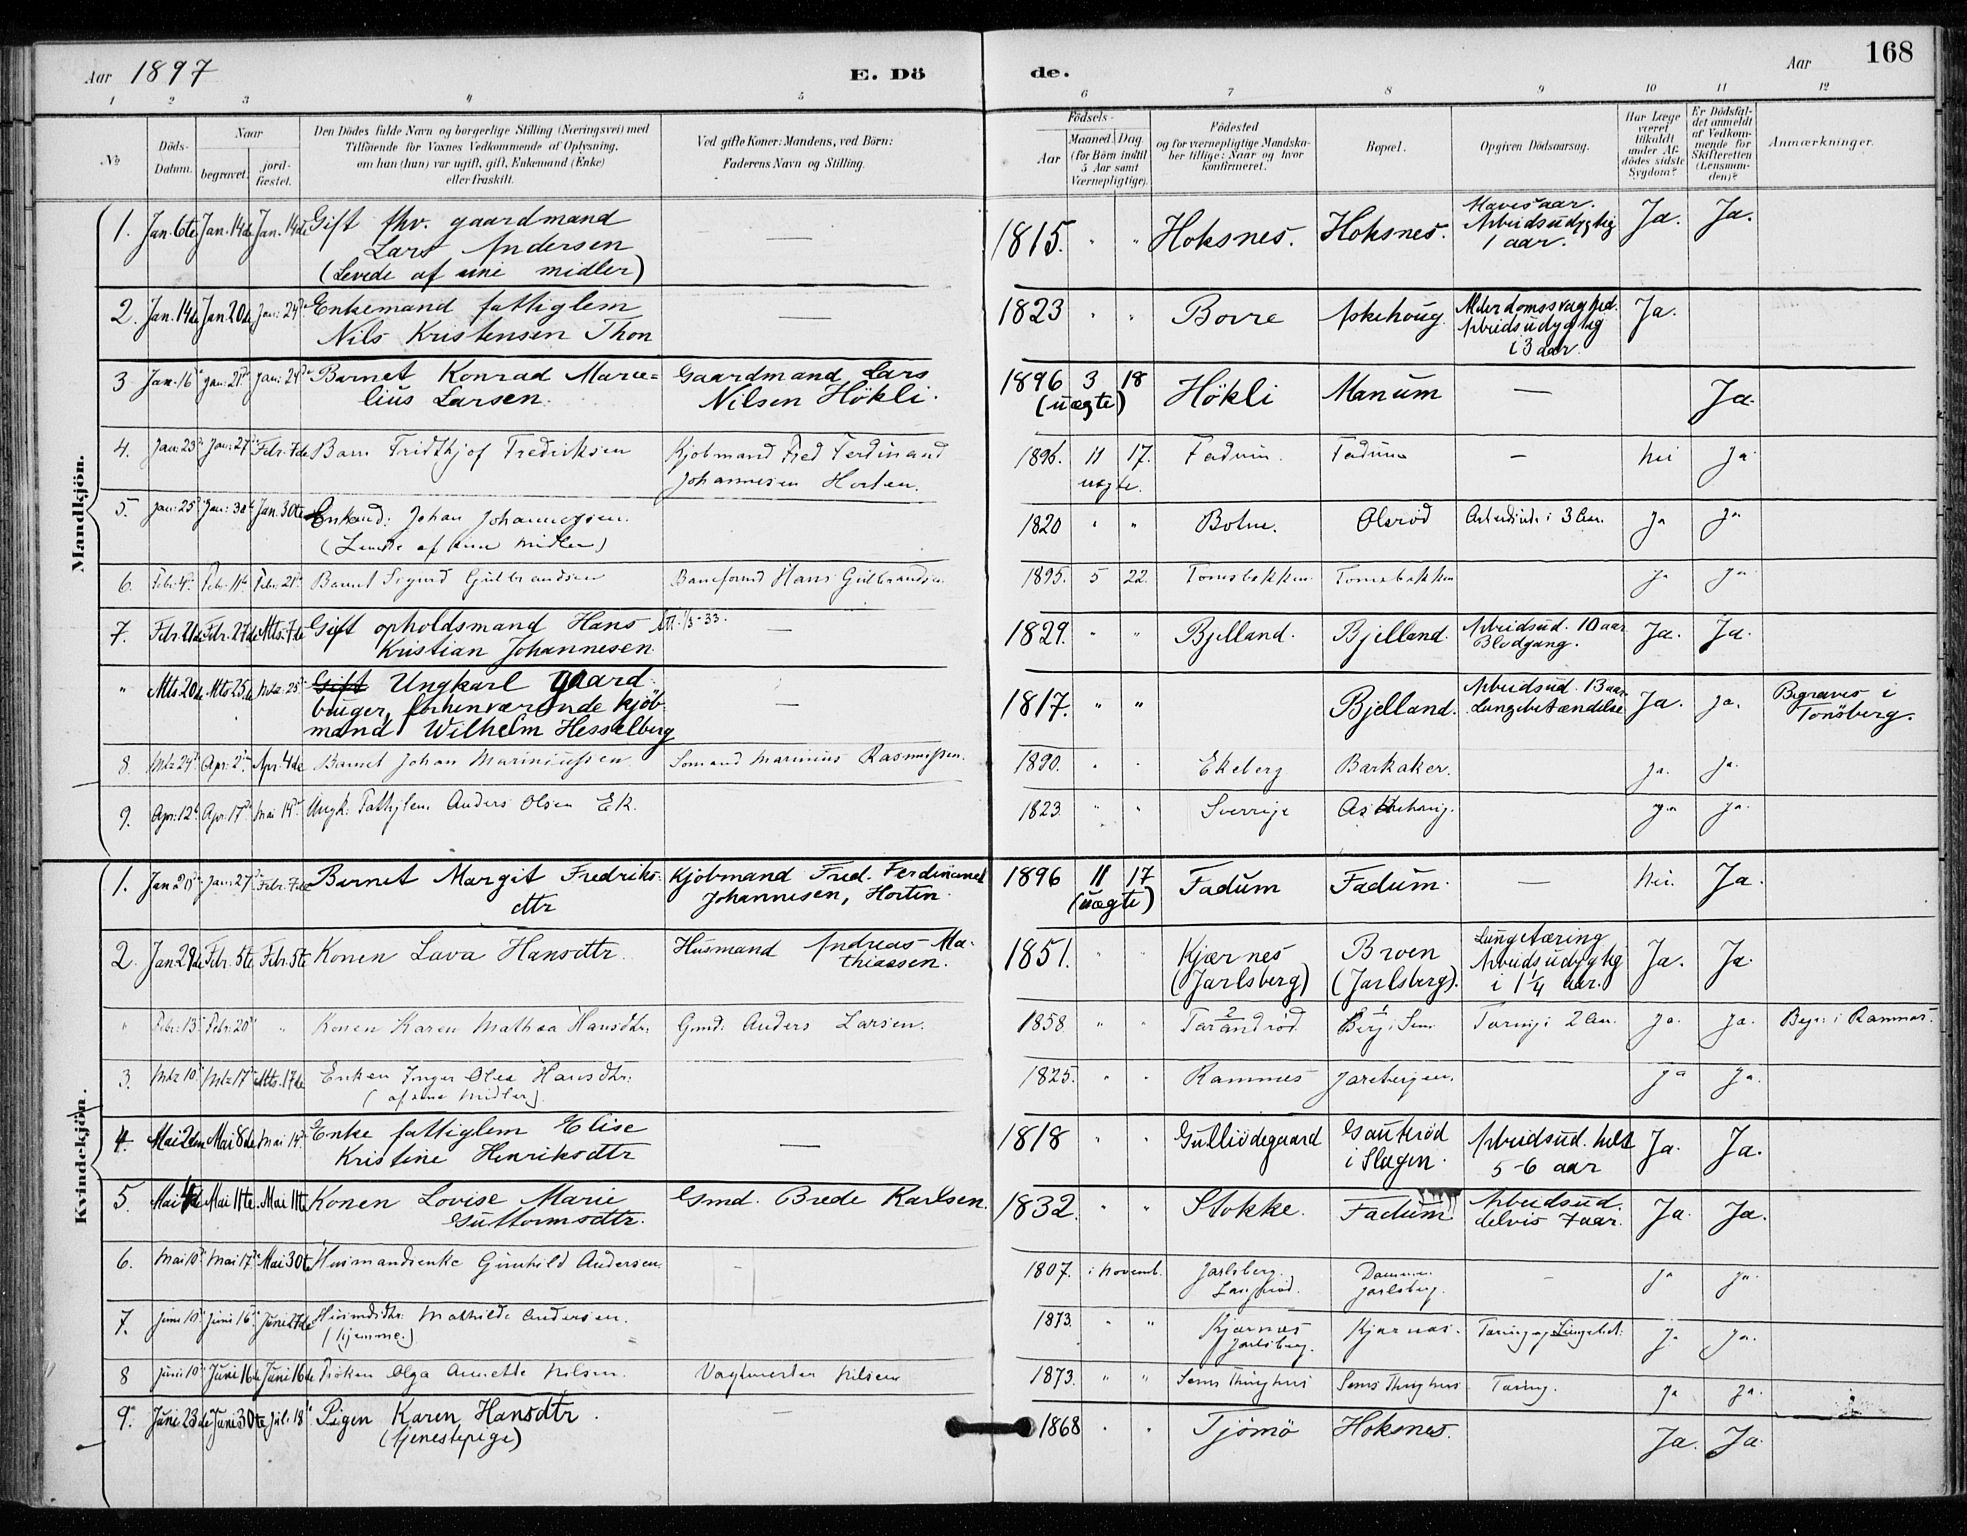 Aar 1897 E. Dö de. Aar 168
1 2 3 4 5 6 7 8 9 10 11 12
No Döds-Datum. Naar begravet. jord-fæstet. Den Dödes fulde Navn og borgerlige Stilling (Næringsvei) med Tilföiende for Voxnes Vedkommende af Oplysning, om han (hun) var ugift, gift, Enkemand (Enke) eller fraskilt. Ved gifte Koner: Mandens, ved Börn: Faderens Navn og Stilling. Födsels- Aar Maaned. Dag. (for Börn indtil 5 Aar samt Værnepligtige). Födested og for værnepligtige Mandskaber tillige: Naar og hvor konfirmeret. Bopæl. Opgiven Dödsaarsag. Har Læge været tilkaldt under Afdödes sidste Sygdom? Er Dödsfaldet anmeldt af Vedkommende for Skifteretten (Lensmanden)? Anmærkninger.
Mandkjön.
1. Jan. 6te Jan. 14de Jan. 14de Gift fhv. gaardmand — 1815. " " Hoksnes. Hoksnes. Mavesaar. Ja. Ja.
Lars Andersen Arbeidsudygtig
(Levede af sine midler) 1 aar.
2. Jan. 14de Jan. 20de Jan: 24de Enkemand fattiglem — 1823 " " Borre Askehoug Alderdomssvaghed. Ja.
Nils Kristensen Thon Arbeidsudygtig
i 3 aar.
3 Jan. 16de Jan: 21de Jan: 24de Barnet Konrad Marce= Gaardmand Lars 1896 3 18 Hökli Manum — Ja.
lius Larsen. Nilsen Hökli. (uægte)
4. Jan: 23de Jan: 27de Febr. 7de Barn Fridthjof Fredriksen Kjöbmand Fred Ferdinand 1896. 11 17. Fadum. Fadum — Nei Ja
Johannesen Horten. uægte.
5. Jan: 25de Jan: 30te Jan. 30te Enkemd: Johan Johannessen. 1820 " " Botne. Olsröd i 3 Aar. Ja Ja
(Levede af sine Midler)
6. Febr: 4de Febr: 11te Febr: 21de Barnet Sigurd Gulbrandsen Baneformd Hans Gulbrandsen. 1895. 5 22. Tomsbakken. Tomsbakken Ja Ja
7. Febr. 21de Febr. 27de Mts. 7de Gift opholdsmand Hans — 1829. " " Bjelland. Bjelland. Arbeidsud. 10 aar Ja. Ja.
Kristian Johannesen. Blodgang.
" Mts. 20de Mts 25de Mts 25de Gift Ungkarl gaard- — 1817. " " Bjelland. Arbeidsud. 13 aar. Ja. Ja. Begraves i
bruger, forhenværende kjöb- Lungebetændelse Tönsberg.
mand Wilhelm Hesselberg
8. Mts 29de Apr: 2den Apr. 4de Barnet Johan Mariniussen Sömand Marinius Rasmussen. 1890. " " Ekeberg Barkaker. Ja. Ja.
9. Apr: 12te Apr: 17de Mai 14de Ungk: Fattiglem Anders Olsen Ek. 1823. " " Sverrige Askehoug. Ja Ja.
Kvindekjön.
1. Jan Jan: 27de Febr. 7de Barnet Margit Fredriks- Kjöbmand Fred. Ferdinand 1896 11 17 Fadum Fadum. — Nei. Ja.
dtr Johannesen, Horten. (uægte)
2. Jan 29de Febr. 5te Febr. 5te Konen Lava Hansdtr. Husmand Andreas Ma- 1851. " " Kjærnes Broen Lungetæring Ja. Ja.
thiassen. (Jarlsberg) (Jarlsberg). Arbeidsudygtig
i 1 1/4 aar.
" Febr: 13de Febr: 20de " Konen Karen Mathea Hansdtr. Gmd: Anders Larsen. 1858. " " Tarandröd Berg i Sem Tæring i 2 Aar. Ja. Ja. Begr: i Ramnes.
3. Mts 10de Mts 17de Mts. 17de Enken Inger Olea Hansdtr: 1825. " " Ramnes Jarebergen. Ja Ja.
(af sine Midler).
4. Mai 2den Mai 8de Mai 14de Enke fattiglem Elise — 1818 " " Gulliödegaard Gauteröd Arbeidsud. helt Ja. Ja.
Kristine Henriksdtr i Slagen. 5-6 aar
5. Mai 4de Mai 11te. Mai 11te Konen Lovise Marie Gmd. Brede Karlsen. 1832. " " Stokke. Fadum Arbeidsud. Ja. Ja.
Guttormsdtr. delvis 7 aar.
6. Mai 10de Mai 17de Mai 30te Husmandsenke Gunhild Andersen. — 1807. i Novemb. Jarlsberg. Jarlsberg. — Ja Ja.
7. Juni 10de Juni 16de Juni 27de Husmdsdtr. Mathilde Andersen. 1873. " " Kjærnes Kjærnes. Tæring og Lungebet: Ja Ja.
(hjemme.) Jarlsberg.
8 Juni 10de Juni 16de Juni 16de Fröken Olga Annette Nilsen. Vagtmester Nilsen 1873. " " Sems Thinghus Sems Thinghus Tæring. Ja Ja.
9. Juni 23de Juni 30te Jul. 18de Pigen Karen Hansdtr. — 1868 " " Tjömö Hoksnes. Ja. Ja.
(tjenestepige)